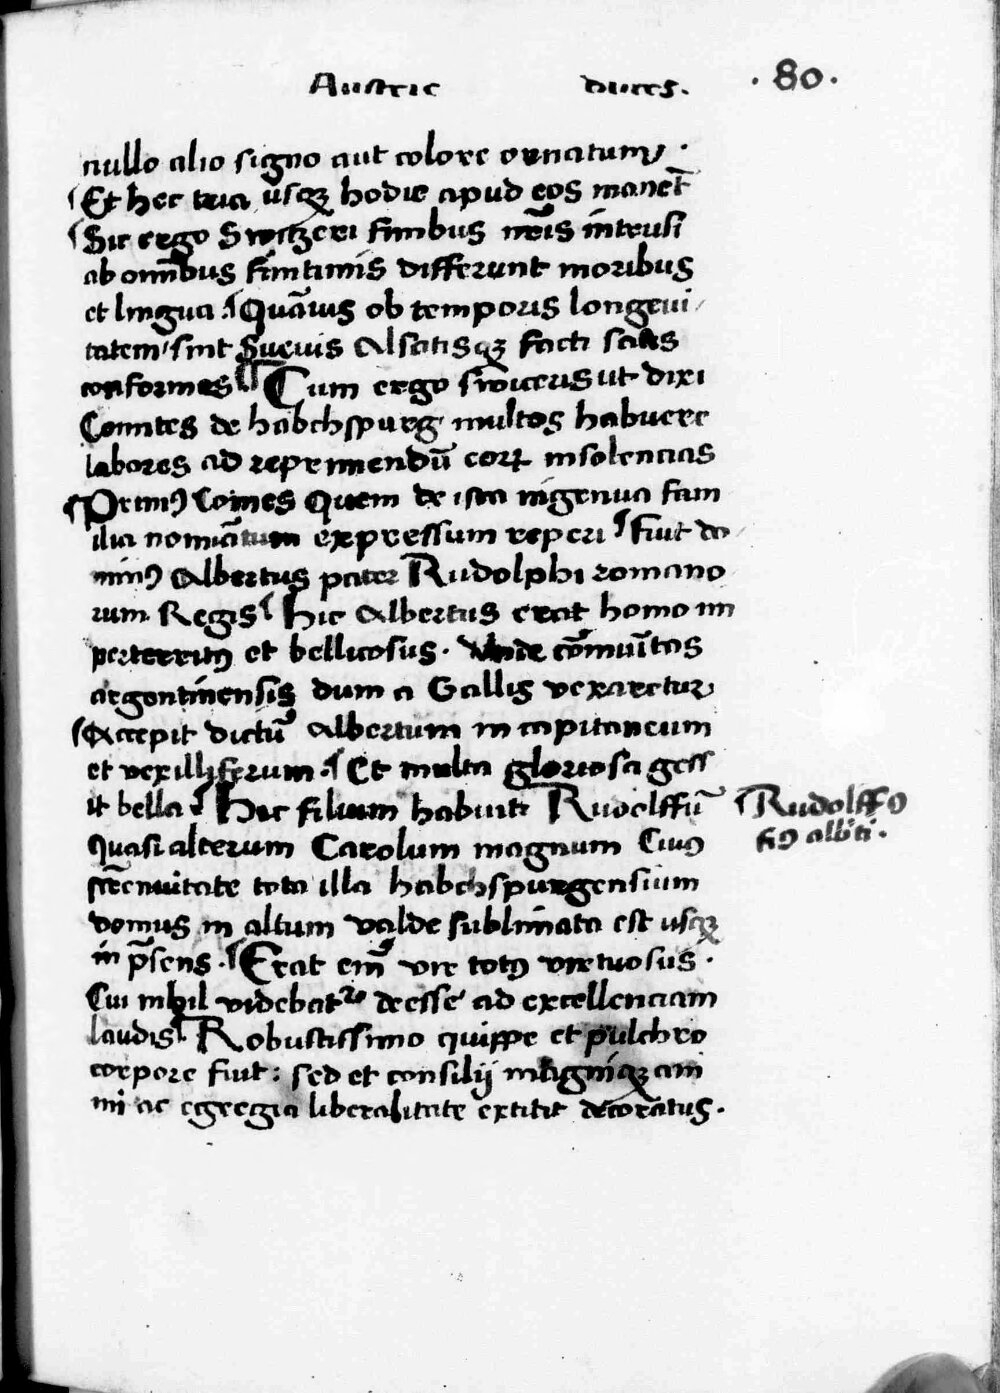 Austrie duces. · 80 ·
nullo alio signo aut colore ornatum ·
Et hec tria usqꝫ hodie apud eos manēt
Sic ergo Switzeri finibus nr̃is intrusi
ab omībus finitimis differunt moribus
et lingua · Quāuis ob temporis longeui
tatem sint Sueuis Alsatisqꝫ facti satis
conformes Cum ergo swicerus ut dixi
Comites de habchspurg multos habuere
labores ad reprimendū eorꝝ insolencias
Primꝰ Comes Quem de ista ingenua fam
ilia nomīatum expressum reperi Fuit do
minꝰ Albertus pater Rudolphi romano
rum Regis Hic Albertus erat homo im
perterritꝰ et bellicosus · Unde cōmuītas
argentinensis dum a Gallis vexaretur
Accepit dictū Albertum in capitaneum
et vexilliferum · Et multa gloriosa gess
it bella Hic filium habuit Rudolffū
Quasi alterum Carolum magnum Cuiꝰ
strēnuitate tota illa habchspurgensium
domus in altum valde sublimata est usqꝫ
in p̄sens · Erat eim̄ vir totꝰ virtuosus ·
Cui nihil videbatᷣ deesse ad excellenciam
laudis Robustissimo quippe et pulchro
corpore fuit : sed et consilij magniqꝫ ani
mi ac egregia liberalitate extitit decoratus ·
Rudolffꝰ
fiꝰ alb̄ti ·